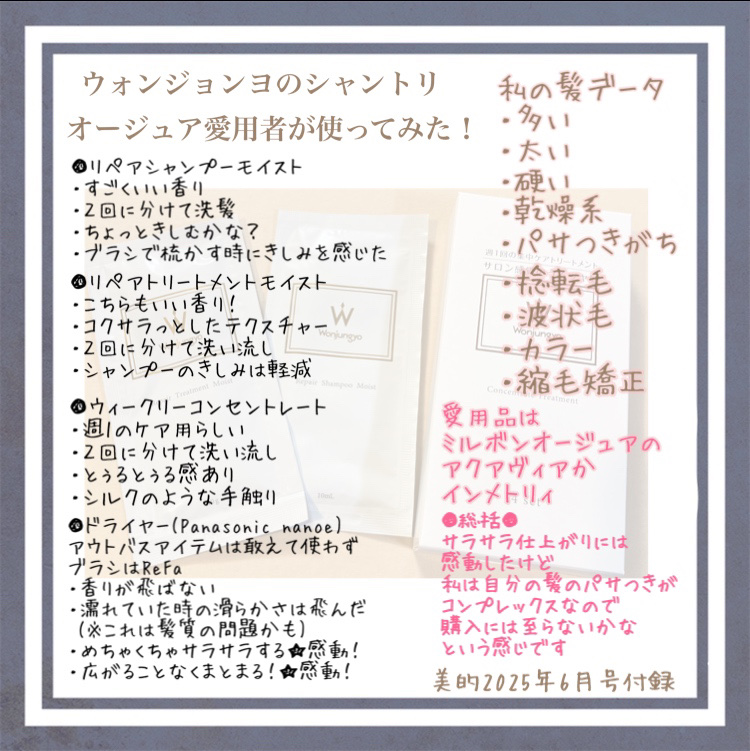 ウォンジョンヨのシャントリ
オージュア愛用者が使ってみた！
●リペアシャンプーモイスト
・すごくいい香り
・2回に分けて洗髪
・ちょっときしむかな?
・ブラシで梳かす時にきしみを感じた
●リペアトリートメントモイスト
・こちらもいい香り!
・コクサラっとしたテクスチャー
・2回に分けて洗い流し
・シャンプーのきしみは軽減
●ウィークリーコンセントレート
・週1のケア用らしい
・2回に分けて洗い流し
・とぅるとぅる感あり
・シルクのような手触り
●ドライヤー(Panasonic nanoe)
アウトバスアイテムは敢えて使わず
ブラシはReFa
・香りが飛ばない
・濡れていた時の滑らかさは飛んだ
(※これは髪質の問題かも)
・めちゃくちゃサラサラする★感動!
・広がることなくまとまる!★感動!
私の髪データ
・多い
・太い
・硬い
・乾燥系
・パサつきがち
・捻転毛
・波状毛
・カラー
・縮毛矯正
愛用品は
ミルボンオージュアの
アクアヴィアか
インメトリィ
●総括●
サラサラ仕上がりには
感動したけど
私は自分の髪のパサつきが
コンプレックスなので
購入には至らないかな
という感じです
美的2025年6月号付録
Treatment Moist
Wonjungyo
Repair Shampoo Moist
10mL
週1回の集中ケアトリートメント
Wonjungyo
Concentrate Treatment